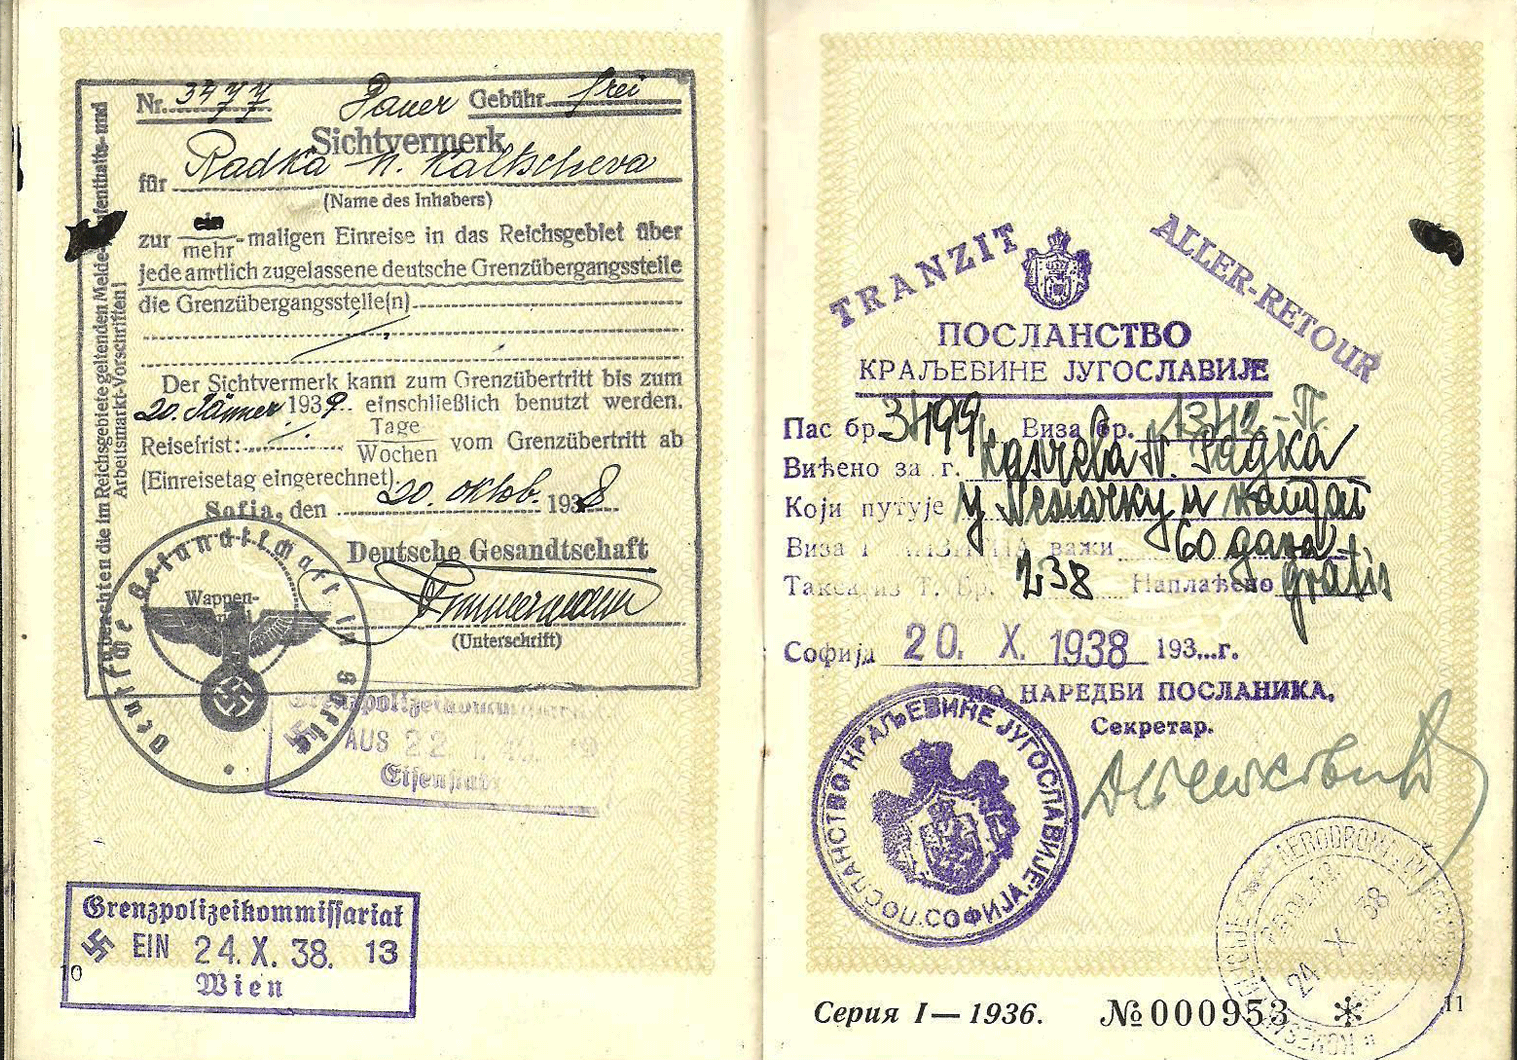 Nr. 3477 Dauer Gebühr frei
Sichtvermerk
für Radka N. Kaltscheva
(Name des Inhabers)
zur ein/mehr-maligen Einreise in das Reichsgebiet über
jede amtlich zugelassene deutsche Grenzübergangsstelle
die Grenzübergangsstelle(n)
Der Sichtvermerk kann zum Grenzübertritt bis zum
20. Jänner 1939 einschließlich benutzt werden.
Reisefrist: Tage/Wochen vom Grenzübertritt ab
(Einreisetag eingerechnet).
Sofia, den 20. oktob. 1938
Deutsche Gesandtschaft
Wappen-
(Unterschrift)
die im Reichsgebiete geltenden Melde-
Arbeitsmarkt-Vorschriften!
Deutsche Gesandtschaft in Sofia
AUS 22
Eisenstadt
Grenzpolizeikommissariat
EIN 24. X. 38. 13
Wien
10
TRANZIT
ALLER-RETOUR
ПОСЛАНСТВО
КРАЉЕВИНЕ ЈУГОСЛАВИЈЕ
Пас бр. 3499 Виза бр.
Виђено за г. N. Радка
Који путује у
Виза важи 60 дана
Такса из Т. Бр. 238 Наплаћено gratis
Софија 20. X. 1938 193...г.
ПО НАРЕДБИ ПОСЛАНИКА,
Секретар.
ПОСЛАНСТВО КРАЉЕВИНЕ ЈУГОСЛАВИЈЕ СОФИЈА
24 X 38
Серия I — 1936. № 000953 ✻
11